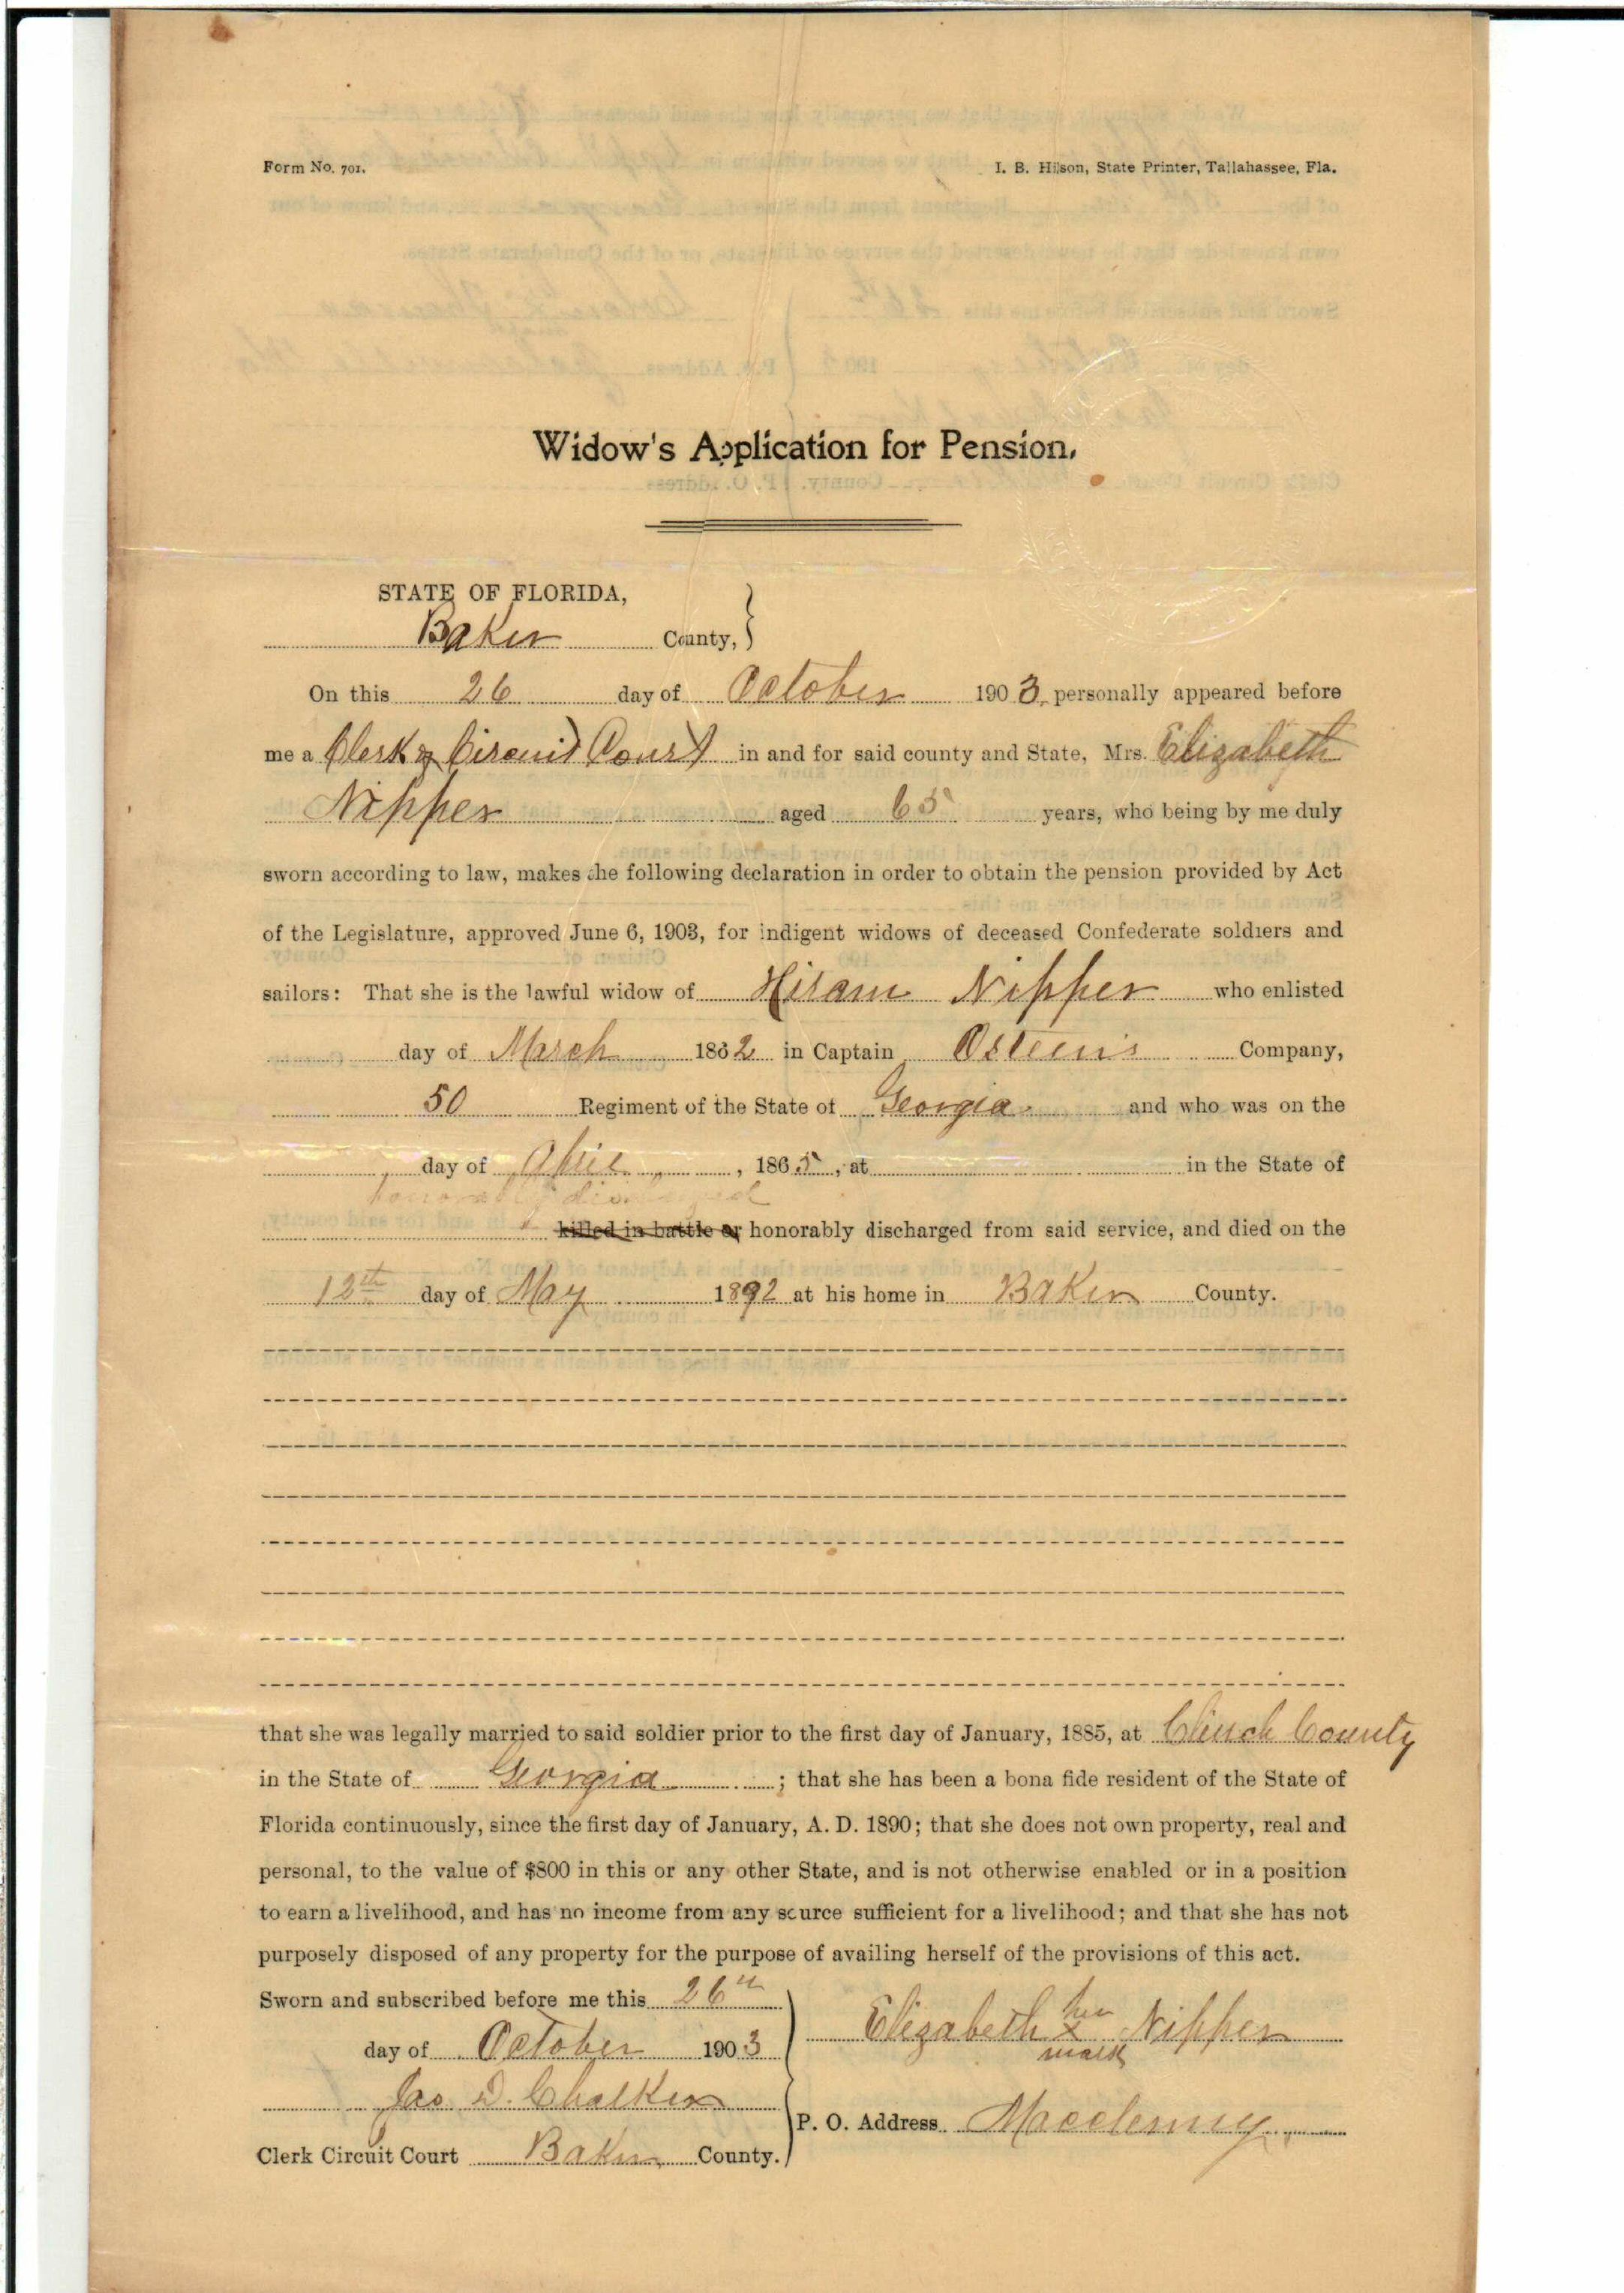 Form No. 701.
I. B. Hilson, State Printer, Tallahassee, Fla.
Widow's Application for Pension.
STATE OF FLORIDA,
Baker County, }
On this 26 day of October 1903, personally appeared before
me a Clerk of Circuit Court in and for said county and State, Mrs. Elizabeth
Nipper aged 65 years, who being by me duly
sworn according to law, makes the following declaration in order to obtain the pension provided by Act
of the Legislature, approved June 6, 1903, for indigent widows of deceased Confederate soldiers and
sailors: That she is the lawful widow of Hiram Nipper who enlisted
day of March 1862 in Captain Osteen's Company,
50 Regiment of the State of Georgia and who was on the
day of April, 1865, at in the State of
honorably discharged
killed in battle or honorably discharged from said service, and died on the
12th day of May 1892 at his home in Baker County.
that she was legally married to said soldier prior to the first day of January, 1885, at Clinch County
in the State of Georgia; that she has been a bona fide resident of the State of
Florida continuously, since the first day of January, A. D. 1890; that she does not own property, real and
personal, to the value of $800 in this or any other State, and is not otherwise enabled or in a position
to earn a livelihood, and has no income from any source sufficient for a livelihood; and that she has not
purposely disposed of any property for the purpose of availing herself of the provisions of this act.
Sworn and subscribed before me this 26th
day of October 1903
Jas. D. Chalker
Clerk Circuit Court Baker County.
Elizabeth her x mark Nipper
P. O. Address Macclenny